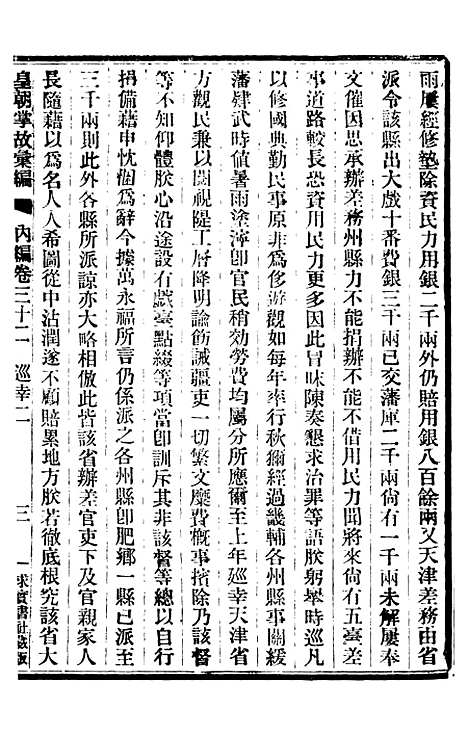 雨屢經修墊除資民力用銀二千兩外仍賠用銀八百餘兩又天津差務由省
派令該縣出大戲十番費銀三千兩已交藩庫二千兩尙有一千兩未解屢奉
文催因思承辦差務州縣力不能捐辦不能不借用民力聞將來尙有五臺差
事道路較長恐資用民力因此冒昧陳奏懇求治罪等語朕躬舉時巡凡
以修國典勤民事原非爲侈遊觀如每年幸行秋獮經過畿輔各州縣事關綏
藩肄武時値暑雨塗潦卽官民稍効勞費均屬分所應爾至上年巡幸天津省
方觀民兼以閱視隄工屢降明諭飭誡疆吏一切繁文糜費槪事擯除乃該督
等不知仰體朕心沿途設有戲臺點綴等項當卽訓斥其非該督等總以自行
捐備藉申忱悃爲辭今據萬永福所言仍係派之各州縣卽肥鄕一縣已派至
三千兩則此外各縣所派諒亦大略相倣此皆該省辦差官吏下及官親家人
長隨藉以爲名人人希圖從中沾潤遂不顧賠累地方朕若徹底根究該省大
皇朝掌故彙編 內編卷三十二 巡幸二 三 求實書社藏版